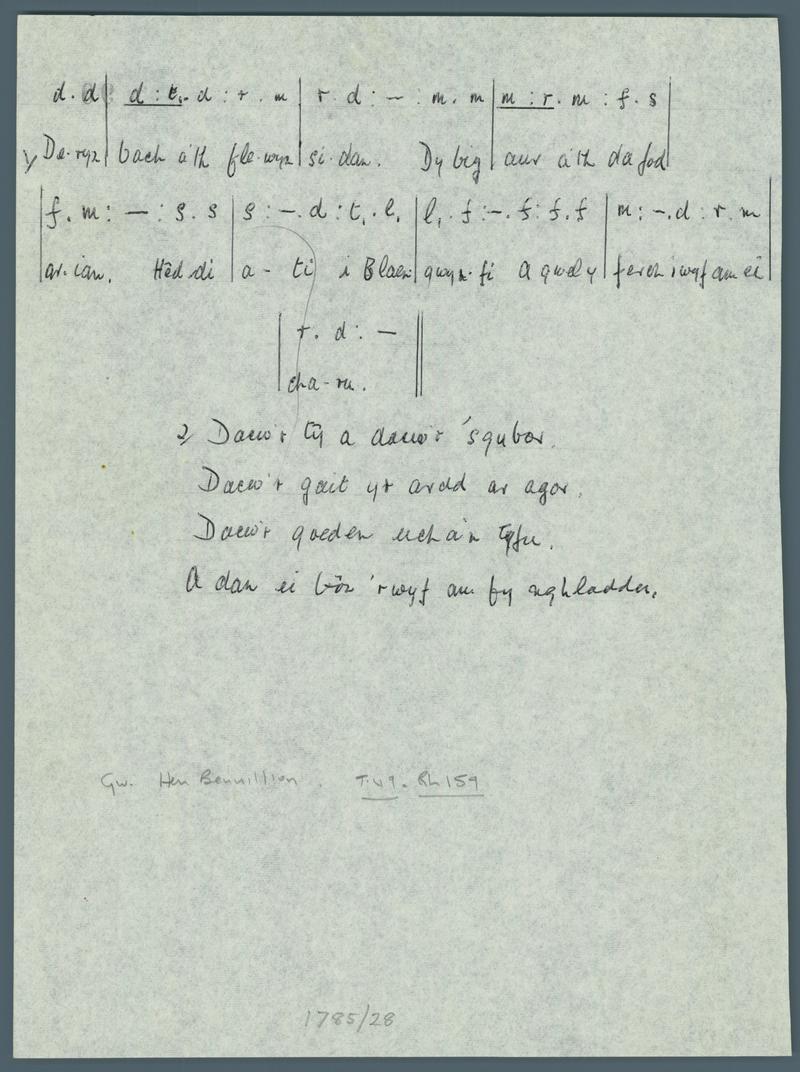 d . d | d : t₁ . d : r . m | r . d : — : m . m | m : r . m : f . s |
1) De-ryn | bach a'th fle-wyn | si-dan. Dy big | aur a'th dafod |
| f . m : — : s . s | s : — . d : t₁ . l₁ | l₁ . f : — . f : f . f | m : — . d : r . m |
| ar-ian. Hêd di | a - ti i Blaen | gwyn-fi A gwel y | ferch rwyf am ei |
| r . d : — ||
cha-ru.
2) Dacw'r tŷ a dacw'r 'sgubor.
Dacw'r gait yr ardd ar agor.
Dacw'r goeden ucha'n tyfu.
A dan ei bôn 'rwyf am fy nghladdu.
Gw. Hen Benillion. T. 49. Rh 159
1785/28